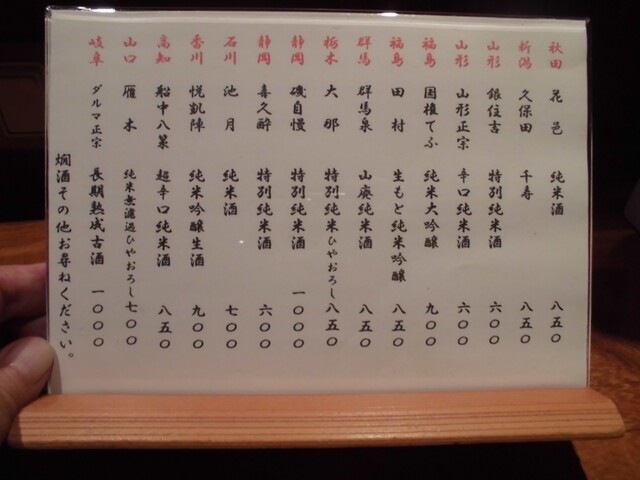 秋田 花邑 純米酒 八五〇
新潟 久保田 千寿 八五〇
山形 銀住吉 特別純米酒 六〇〇
山形 山形正宗 辛口純米酒 六〇〇
福島 国権てふ 純米大吟醸 九〇〇
福島 田村 生もと純米吟醸 八五〇
群馬 群馬泉 山廃純米酒 八五〇
栃木 大那 特別純米ひやおろし 八五〇
静岡 磯自慢 特別純米酒 一〇〇〇
静岡 喜久酔 特別純米酒 六〇〇
石川 池月 純米酒 七〇〇
香川 悦凱陣 純米吟醸生酒 九〇〇
高知 船中八策 超辛口純米酒 八五〇
山口 雁木 純米無濾過ひやおろし 七〇〇
岐阜 ダルマ正宗 長期熟成古酒 一〇〇〇
燗酒その他お尋ねください。